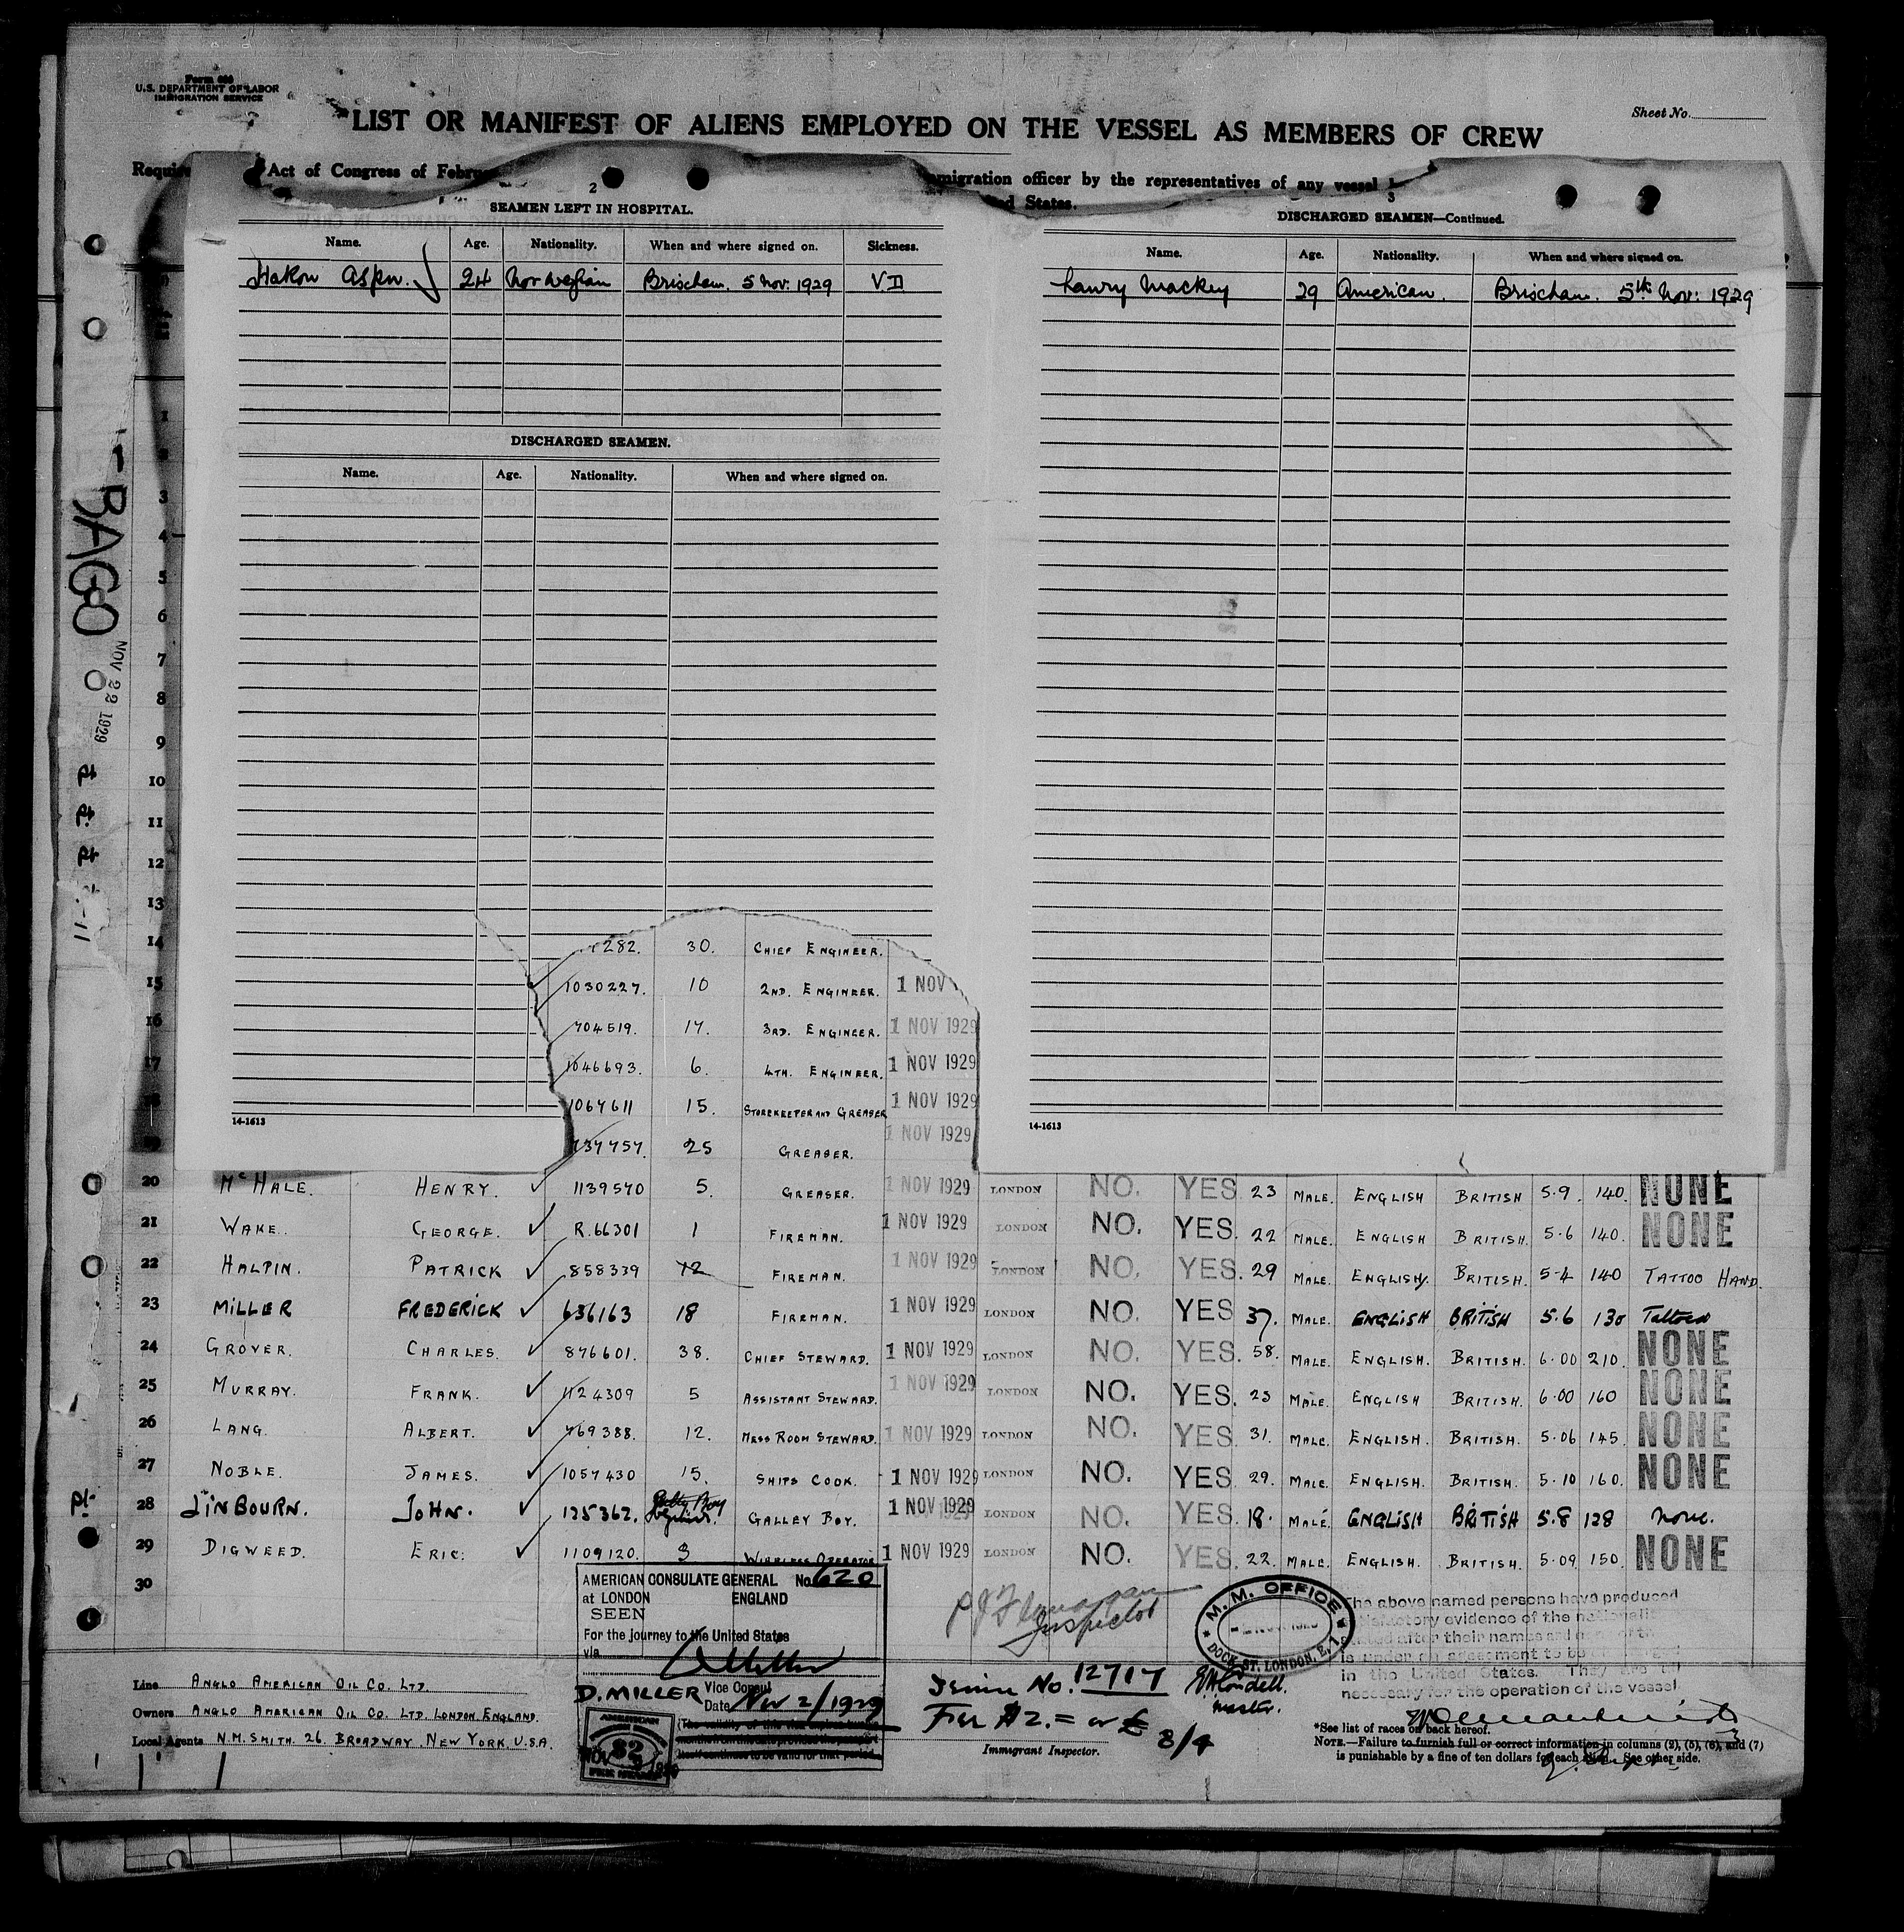 Form 680
U.S. DEPARTMENT OF LABOR
IMMIGRATION SERVICE
Sheet No.
LIST OR MANIFEST OF ALIENS EMPLOYED ON THE VESSEL AS MEMBERS OF CREW
Act of Congress of
immigration officer by the representatives of any vessel
States.
2
SEAMEN LEFT IN HOSPITAL.
Name. Age. Nationality. When and where signed on. Sickness.
Hakon Aspen. 24 Norwegian Brixham. 5 Nov: 1929 VD
DISCHARGED SEAMEN.
Name. Age. Nationality. When and where signed on.
14-1613
3
DISCHARGED SEAMEN—Continued.
Name. Age. Nationality. When and where signed on.
Mackey 29 American. Brixham. 5th Nov: 1929
14-1613
BAGO
NOV 22 1929
3
4
5
6
7
8
9
10
11
12
13
14 282. 30. CHIEF ENGINEER.
15 1030227. 10 2ND. ENGINEER. 1 NOV
16 704519. 17. 3RD. ENGINEER. 1 NOV 1929
17 1046693. 6. 4TH. ENGINEER. 1 NOV 1929
18 1067611 15. STOREKEEPER AND GREASER 1 NOV 1929
19 737757. 25 GREASER. 1 NOV 1929
20 McHALE. HENRY. 1139570 5. GREASER. 1 NOV 1929 LONDON NO. YES 23 MALE. ENGLISH BRITISH 5.9. 140. NONE
21 WAKE. GEORGE. R.66301 1 FIREMAN. 1 NOV 1929 LONDON NO. YES. 22 MALE. ENGLISH BRITISH. 5.6 140. NONE
22 HALPIN. PATRICK 858339 12 FIREMAN. 1 NOV 1929 LONDON NO. YES. 29 MALE. ENGLISH. BRITISH. 5-4 140 TATTOO HAND.
23 MILLER FREDERICK 636163 18 FIREMAN. 1 NOV 1929 LONDON NO. YES 37. MALE. ENGLISH BRITISH 5.6 130 Tattoed
24 GROVER. CHARLES. 876601. 38. CHIEF STEWARD. 1 NOV 1929 LONDON NO. YES. 58. MALE. ENGLISH. BRITISH. 6.00 210. NONE
25 MURRAY. FRANK. 1124309 5 ASSISTANT STEWARD. 1 NOV 1929 LONDON NO. YES. 25 MALE. ENGLISH BRITISH. 6.00 160 NONE
26 LANG. ALBERT. 769388. 12. MESS ROOM STEWARD. 1 NOV 1929 LONDON NO. YES. 31. MALE. ENGLISH. BRITISH. 5.06 145. NONE
27 NOBLE. JAMES. 1057430 15. SHIPS COOK. 1 NOV 1929 LONDON NO. YES 29. MALE. ENGLISH. BRITISH. 5.10 160. NONE
28 LINBOURN. JOHN. 125362. GALLEY BOY. 1 NOV 1929 LONDON NO. YES. 18. MALE. ENGLISH BRITISH 5.8 128 None.
29 DIGWEED. ERIC. 1109120. 3 WIRELESS OPERATOR 1 NOV 1929 LONDON NO. YES. 22. MALE. ENGLISH. BRITISH. 5.09 150. NONE
30
AMERICAN CONSULATE GENERAL No. 620
at LONDON ENGLAND
SEEN
For the journey to the United States
via
D. MILLER Vice Consul
Date Nov 2/1929
Inspector
Service No. 12717
Fee $2.= or £ 8/4
Immigrant Inspector.
master.
M. M. OFFICE
DOCK ST. LONDON, E.1
The above named persons have produced
satisfactory evidence of the nationality
stated after their names and
is under an agreement to be
in the United States. They are all
necessary for the operation of the vessel
Line ANGLO AMERICAN OIL CO. LTD.
Owners ANGLO AMERICAN OIL CO. LTD. LONDON. ENGLAND.
Local Agents N.M. SMITH. 26. BROADWAY. NEW YORK. U.S.A.
*See list of races on back hereof.
NOTE.—Failure to furnish full or correct information in columns (2), (5), (6), and (7)
is punishable by a fine of ten dollars for each alien. See other side.